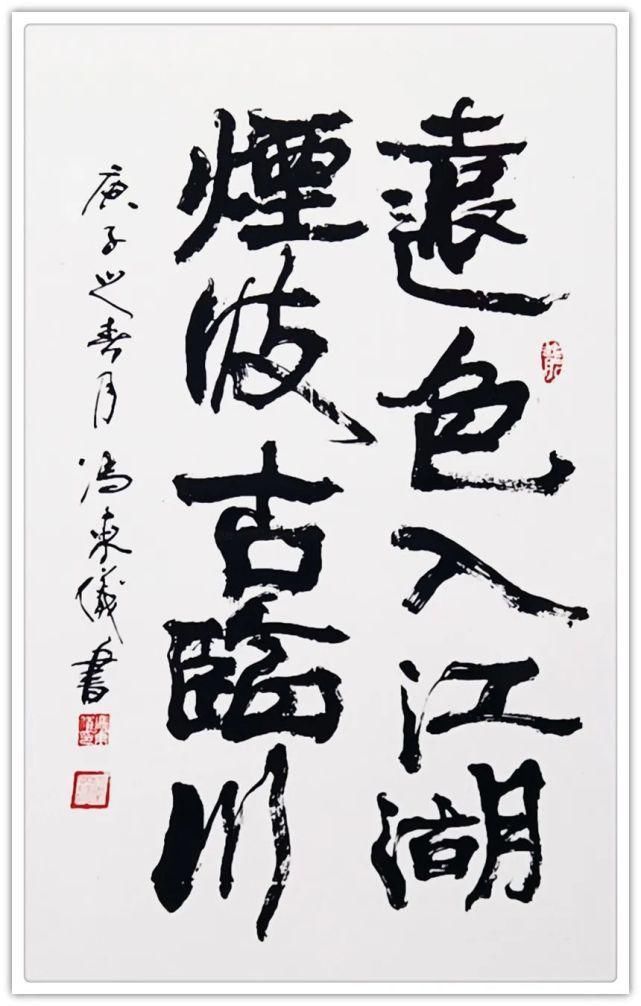 遠色入江湖
煙波古臨川
庚子之春月馮來儀書